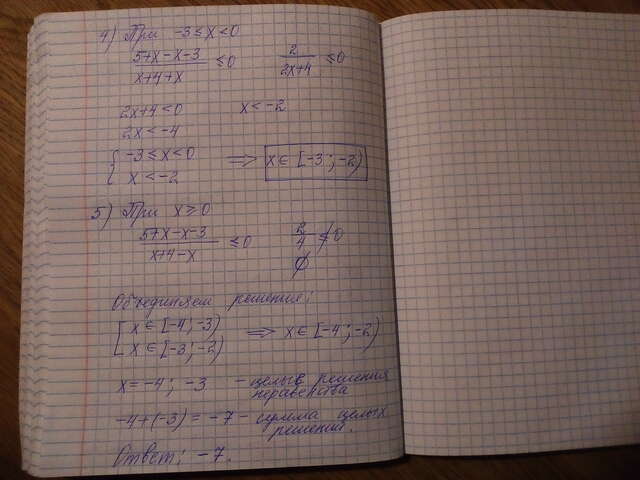 4) При -3 ≤ x < 0
(5+x-x-3)/(x+4+x) ≤ 0   2/(2x+4) ≤ 0
2x+4 < 0   x < -2
2x < -4
{ -3 ≤ x < 0
{ x < -2   ⟹ x ∈ [-3; -2)
5) При x ≥ 0
(5+x-x-3)/(x+4-x) ≤ 0   2/4 ≰ 0
∅
Объединяем решения:
[ x ∈ [-4; -3)
[ x ∈ [-3; -2)   ⟹ x ∈ [-4; -2)
x = -4; -3 - целые решения
неравенства
-4+(-3) = -7 - сумма целых
решений.
Ответ: -7.